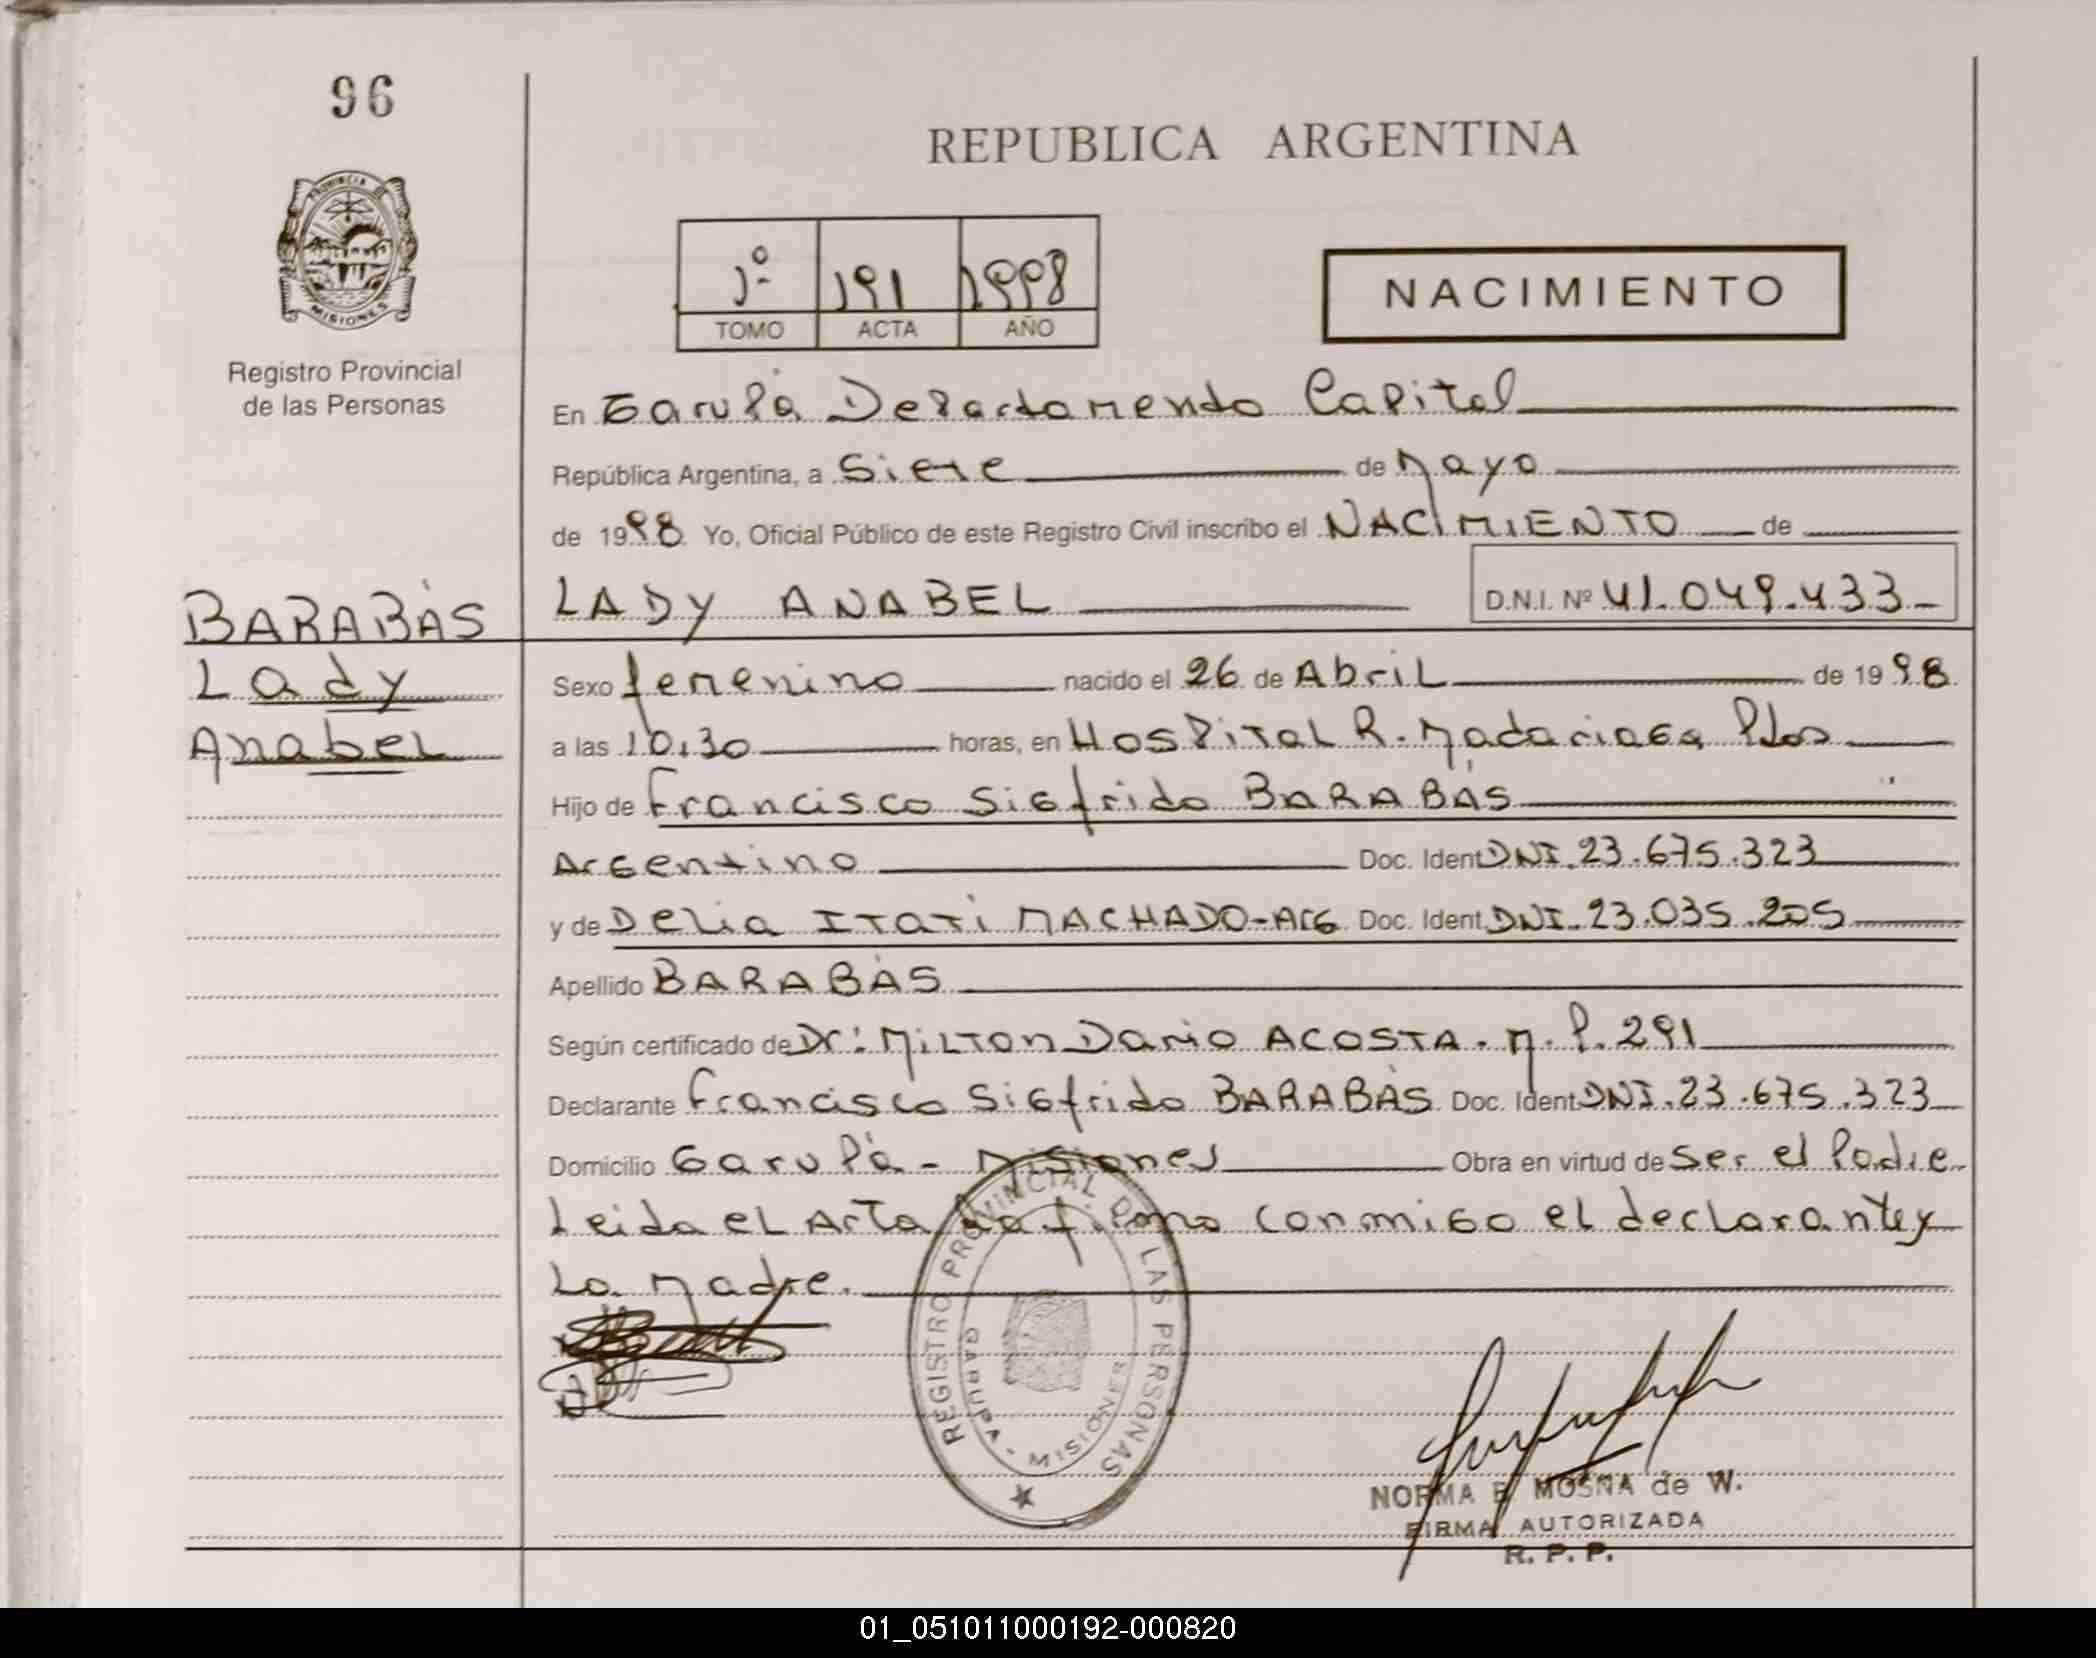 96
REPUBLICA ARGENTINA
PROVINCIA DE
MISIONES
Registro Provincial
de las Personas
1º 191 1998
TOMO ACTA AÑO
NACIMIENTO
En Garupá Departamento Capital
República Argentina, a Siete de Mayo
de 1998 Yo, Oficial Público de este Registro Civil inscribo el NACIMIENTO de
BARABÁS
Lady
Anabel
LADY ANABEL D.N.I. Nº 41.049.433
Sexo femenino nacido el 26 de Abril de 1998
a las 10,30 horas, en Hospital R. Madariaga Pdas
Hijo de Francisco Sigfrido BARABÁS
Argentino Doc. Ident DNI. 23.675.323
y de Delia Itatí MACHADO-Arg Doc. Ident. DNI. 23.035.205
Apellido BARABÁS
Según certificado de Dr: Milton Dario ACOSTA. M.P. 291
Declarante Francisco Sigfrido BARABÁS Doc. Ident DNI. 23.675.323
Domicilio Garupá - Misiones Obra en virtud de Ser el Padre
Leida el Acta la firma conmigo el declarante y
La Madre.
REGISTRO PROVINCIAL DE LAS PERSONAS
GARUPA - MISIONES
NORMA E. MOSNA de W.
FIRMA AUTORIZADA
R. P. P.
01_051011000192-000820